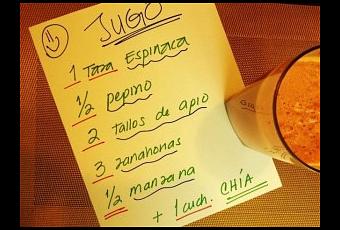 JUGO
1 Taza Espinaca
1/2 pepino
2 Tallos de apio
3 zanahorias
1/2 manzana
+ 1 cuch. CHÍA